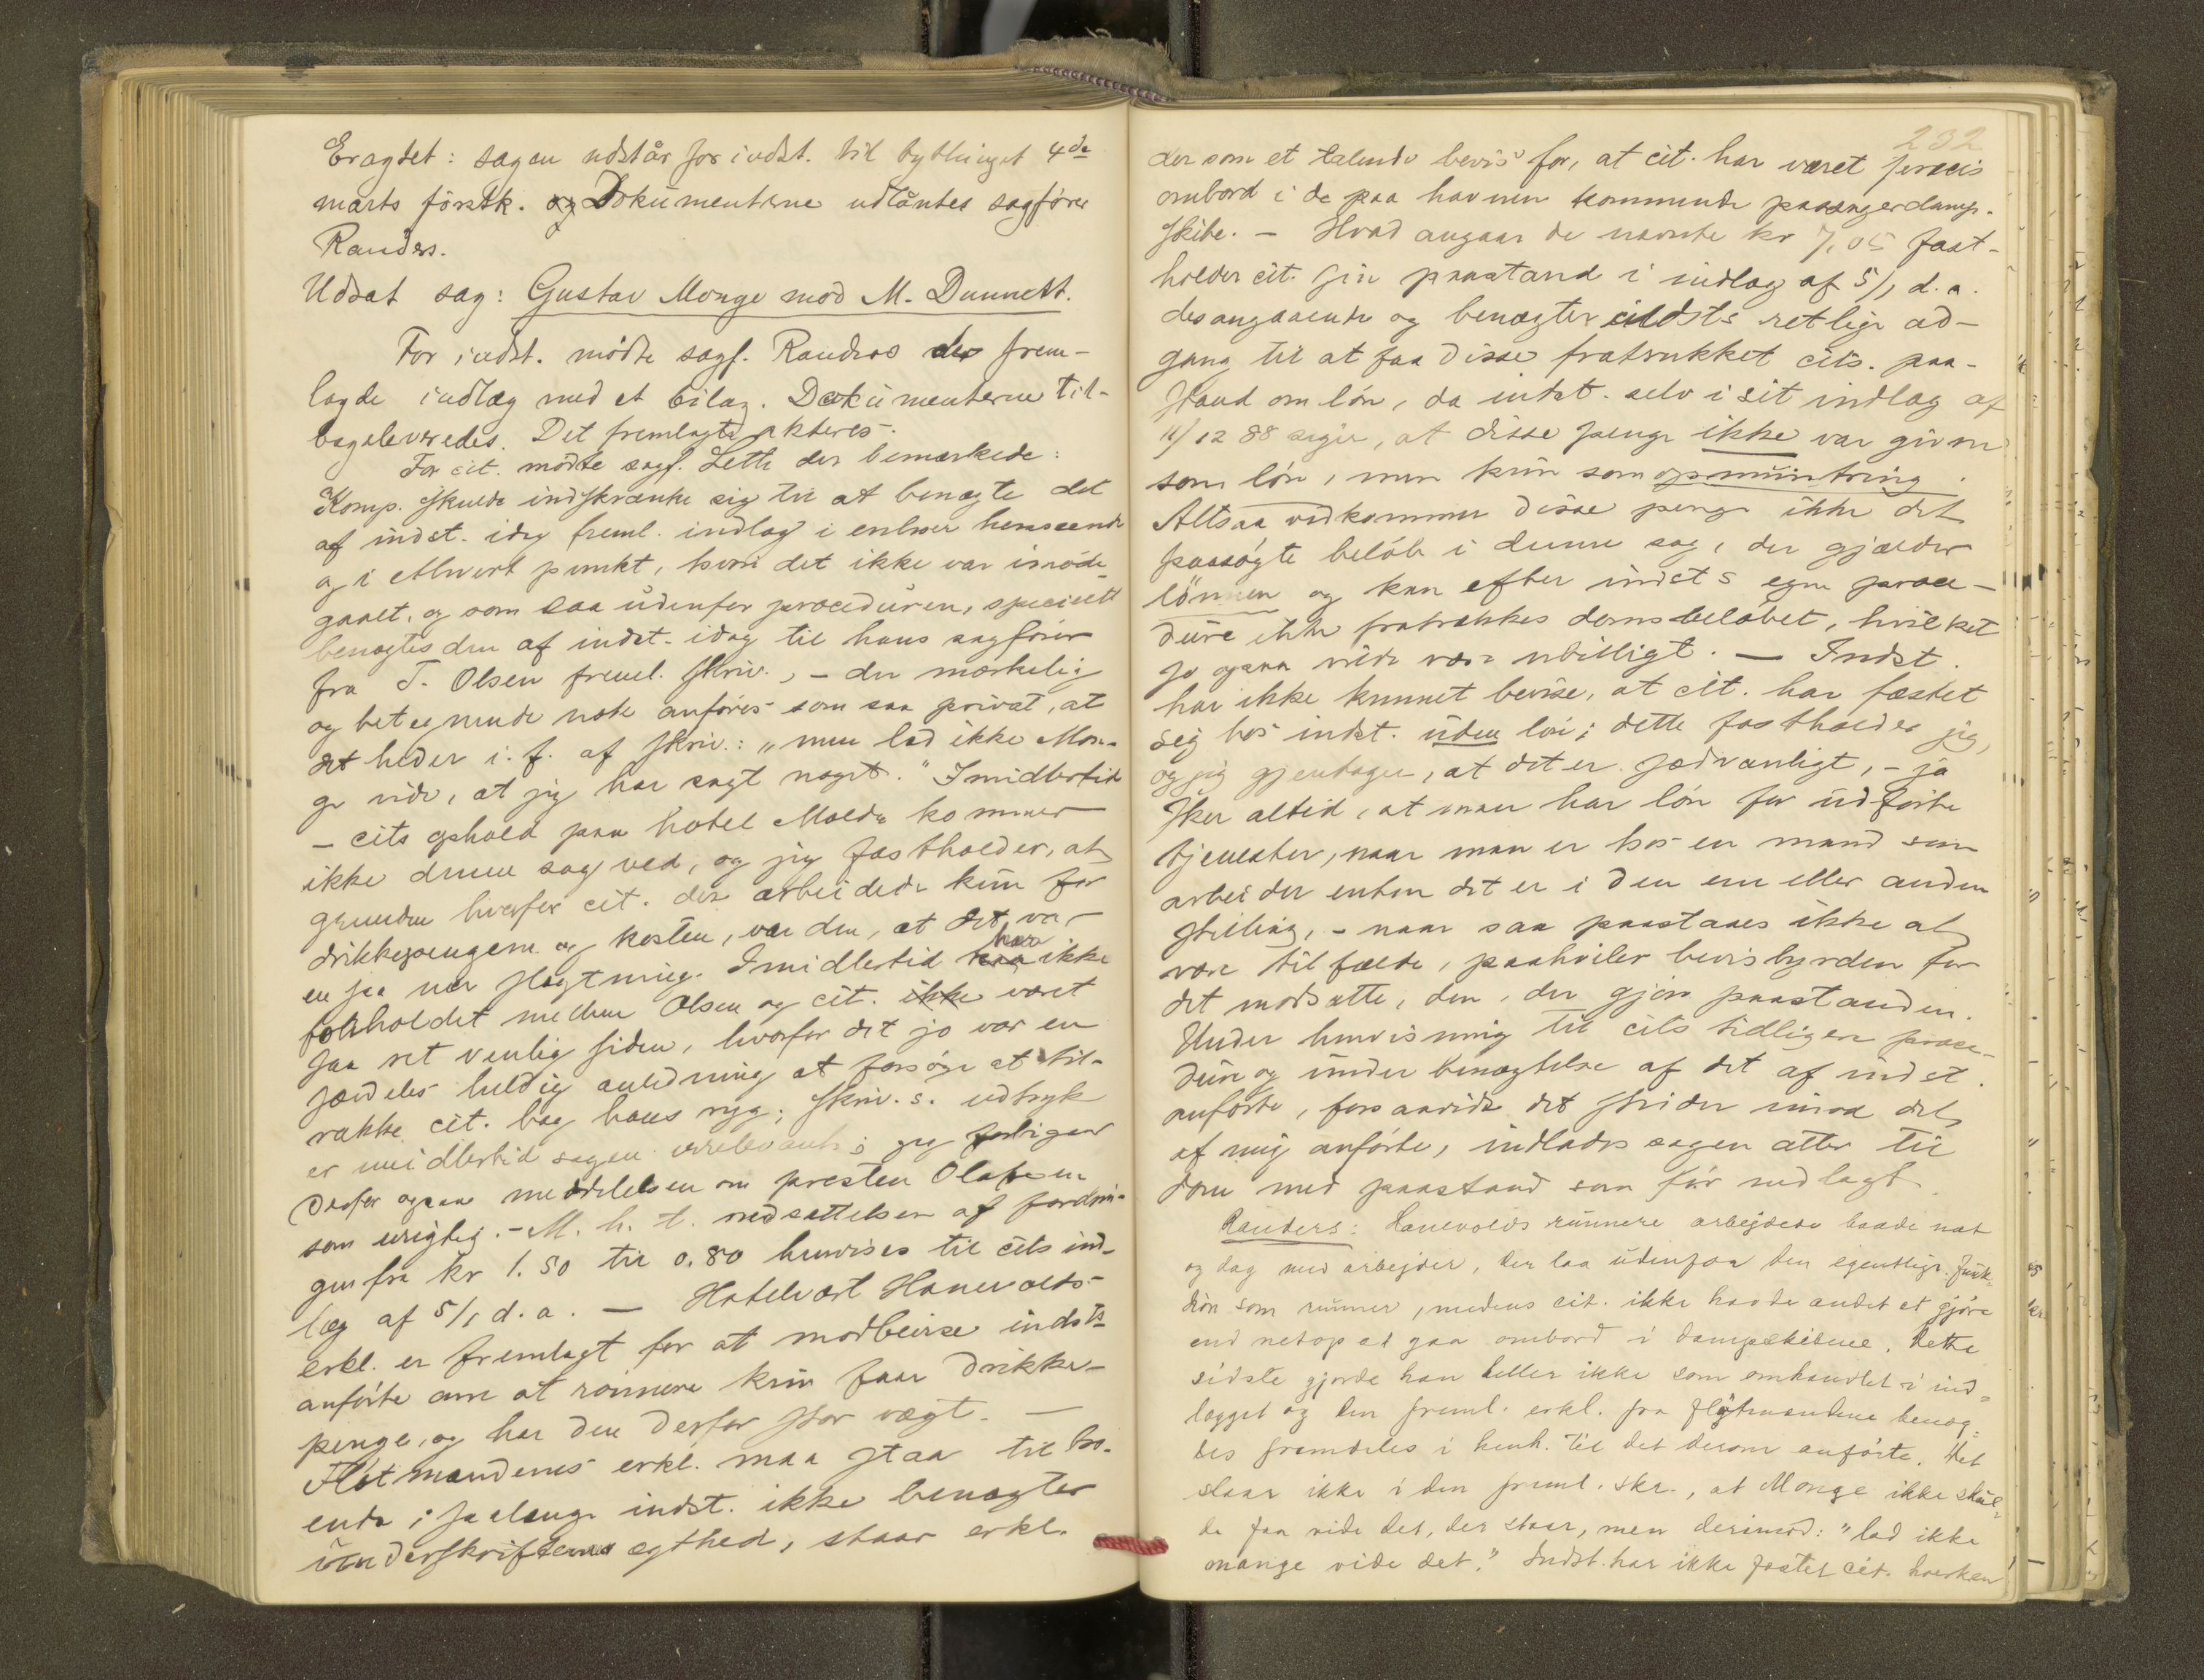 Eragtet: sagen udstår for indst. til bythinget 4de
marts förstk. og Dokumenterne udlåntes sagfører
Randers.
Udsat sag: Gustav Monge mod M. Dannevt.
For indst. mödte sagf. Randers der frem-
lagde indlæg med et bilag. Dokumenterne til-
bageleveredes. Det fremlagte akteres.
For cit. mödte sagf. Leth der bemærkede:
Komp. skulde indskrænke sig til at benægte det
af indst. idag freml. indlæg i enhver henseende
og i ethvert punkt, hvori det ikke var imöde-
gaaet, og som saa udenfor proceduren, specielt
benægtes den af indst. idag til hans sagförer
fra T. Olsen freml. skriv., – den mærkelig
og betegnende note anföres som saa privat, at
det heder i. f. af skriv.: "men lad ikke Mon-
ge vide, at jeg har sagt noget." Imidlertid
– cits ophold paa hotel Molde kommer
ikke denne sag ved, og jeg fastholder, at
grunden hvorfor cit. der arbeidede kun for
drikkepengene og kosten, var den, at det var
en saa nær slægtning. Imidlertid har ikke
forholdet mellem Olsen og cit. ikke været
saa ret venlig siden, hvorfor det jo var en
særdeles heldig anledning at forsöge at til-
rakke cit. bag hans ryg; skriv. s. udtryk
er imidlertid sagen irrelevant; jeg forbigaar
derfor ogsaa meddelelsen om presten Olafsen
som urigtig. – M. h. t. nedsættelsen af fordrin-
gen fra kr 1.50 til 0.80 henvises til cits ind-
læg af 5/1 d. a. – Hotelvært Hanevolds
erkl. er fremlagt for at modbevise indsts
anförte om at runnere kun faar drikke-
penge, og har den derfor stor vægt. –
Flötmandenes erkl. maa staa til tro-
ende; saalænge indst. ikke benægter
underskrifternes ægthed, staar erkl.
232
der som et talende bevis for, at cit. har været precis
ombord i de paa havnen kommende passagerdamp-
skibe. – Hvad angaar de nævnte kr 7,05 fast-
holder cit. sin paastand i indlæg af 5/1 d. a.
desangaaende og benægter indsts retlige ad-
gang til at faa disse fratrukket cits. paa-
stand om lön, da indst. selv i sit indlæg af
11/12 88 siger, at disse penge ikke var givne
som lön, men kun som opmuntring.
Altsaa vedkommer disse penge ikke det
paasögte belöb i denne sag, der gjælder
lönnen og kan efter indsts egne proce-
dure ikke fratrækkes domsbelöbet, hvilket
jo ogsaa vilde være ubilligt. – Indst.
har ikke kunnet bevise, at cit. har fæstet
seg hos indst. uden lön; dette fastholder jeg,
og jeg gjentager, at det er sædvanligt, – ja
sker altid, at man har lön for udförte
tjenester, naar man er hos en mand som
arbeider enten det er i den ene eller anden
stilling, – naar saa paastaaes ikke at
være tilfælde, paahviler bevisbyrden for
det modsatte, den, der gjör paastanden.
Under henvisning til cits tidligere proce-
dure og under benægtelse af det af indst.
anförte, forsaavidt det strider imod det
af mig anförte, indlades sagen atter til
dom med paastand som för nedlagt.
Randers: Hanevolds runnere arbejdede baade nat
og dag med arbejder, der laa udenfor den egentlige funk-
tion som runner, medens cit. ikke havde andet at gjöre
end netop at gaa ombord i dampskibene. Dette
sidste gjorde han heller ikke som omhandlet i ind-
lægget og den freml. erkl. fra flötmandene benæg-
tes fremdeles i henh. til det derom anförte. Det
staar ikke i den freml. skr., at Monge ikke skul-
de faa vide det, der staar, men derimod: "lad ikke
mange vide det." Indst. har ikke fæstet cit. hverken